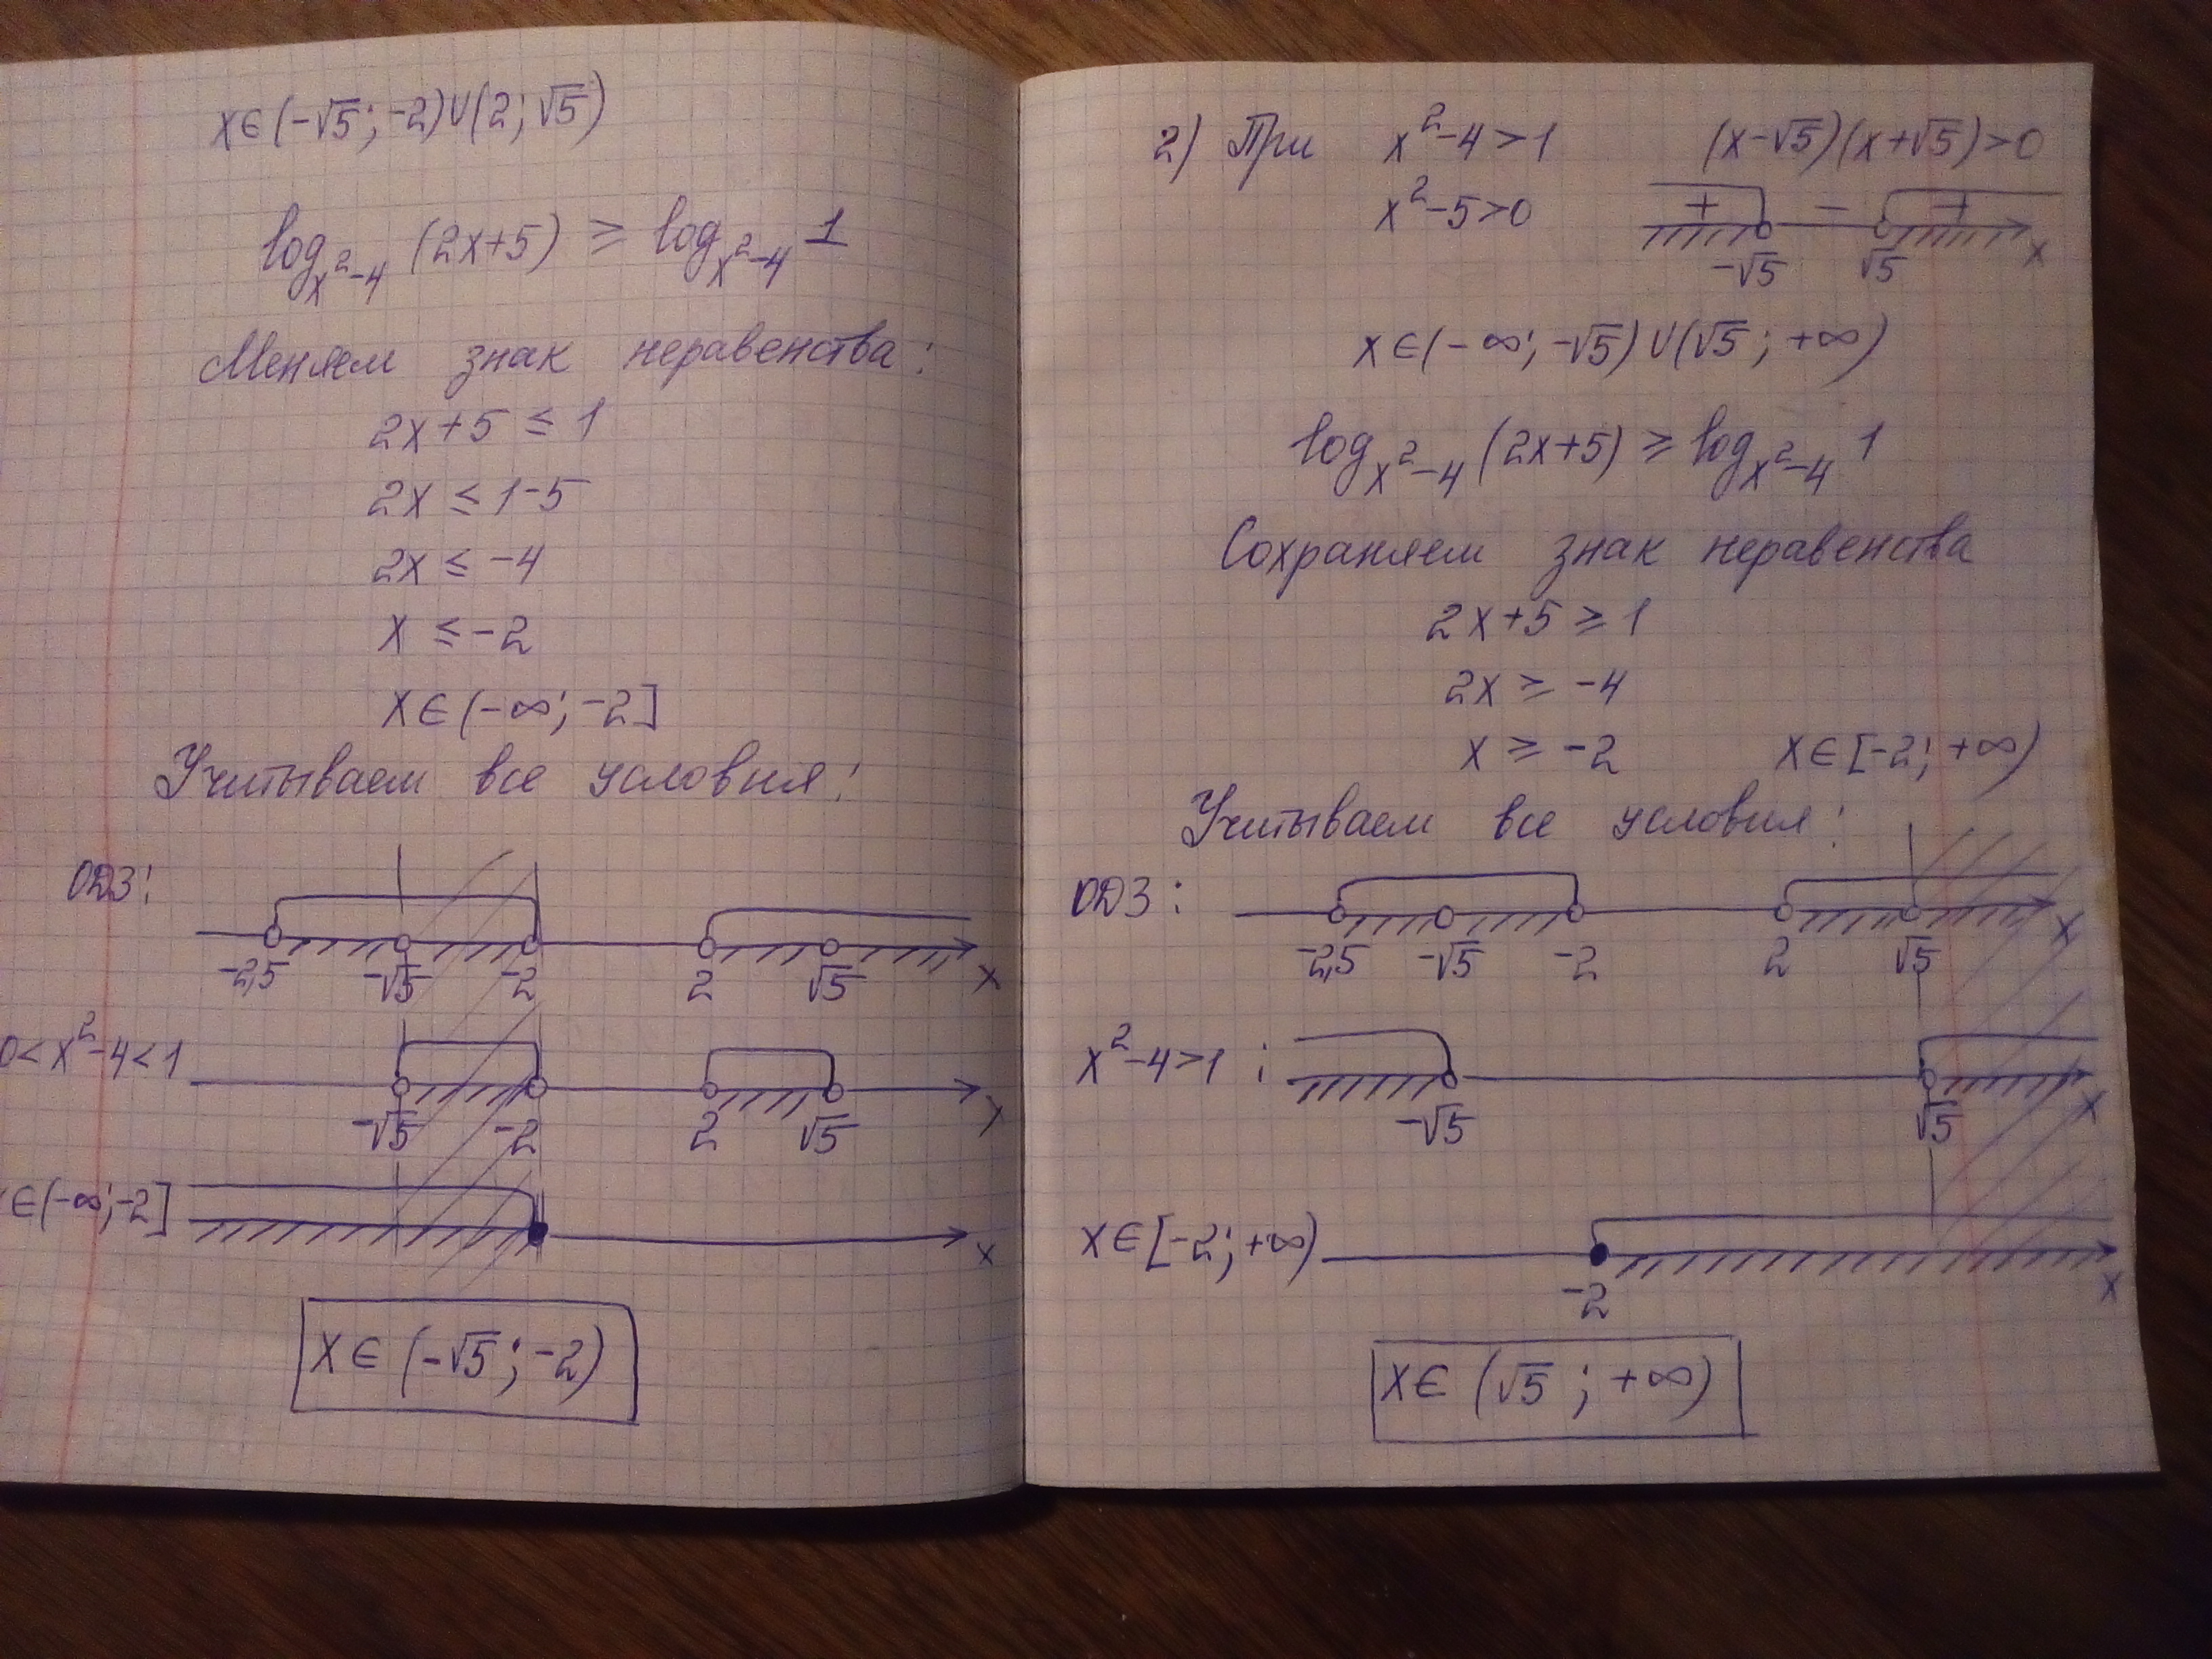 x∈(-√5; -2)∪(2; √5)
log_{x²-4} (2x+5) ≥ log_{x²-4} 1
Меняем знак неравенства:
2x+5 ≤ 1
2x ≤ 1-5
2x ≤ -4
x ≤ -2
x∈(-∞; -2]
Учитываем все условия:
ОДЗ:
-2,5 -√5 -2 2 √5 x
0<x²-4<1
-√5 -2 2 √5 x
∈(-∞; -2]
x
x∈ (-√5; -2)
2) При x²-4>1 (x-√5)(x+√5)>0
x²-5>0 + - +
-√5 √5 x
x∈(-∞; -√5)∪(√5; +∞)
log_{x²-4} (2x+5) ≥ log_{x²-4} 1
Сохраняем знак неравенства
2x+5 ≥ 1
2x ≥ -4
x ≥ -2 x∈[-2; +∞)
Учитываем все условия:
ОДЗ:
-2,5 -√5 -2 2 √5 x
x²-4>1:
-√5 √5 x
x∈[-2; +∞)
-2 x
x∈ (√5; +∞)